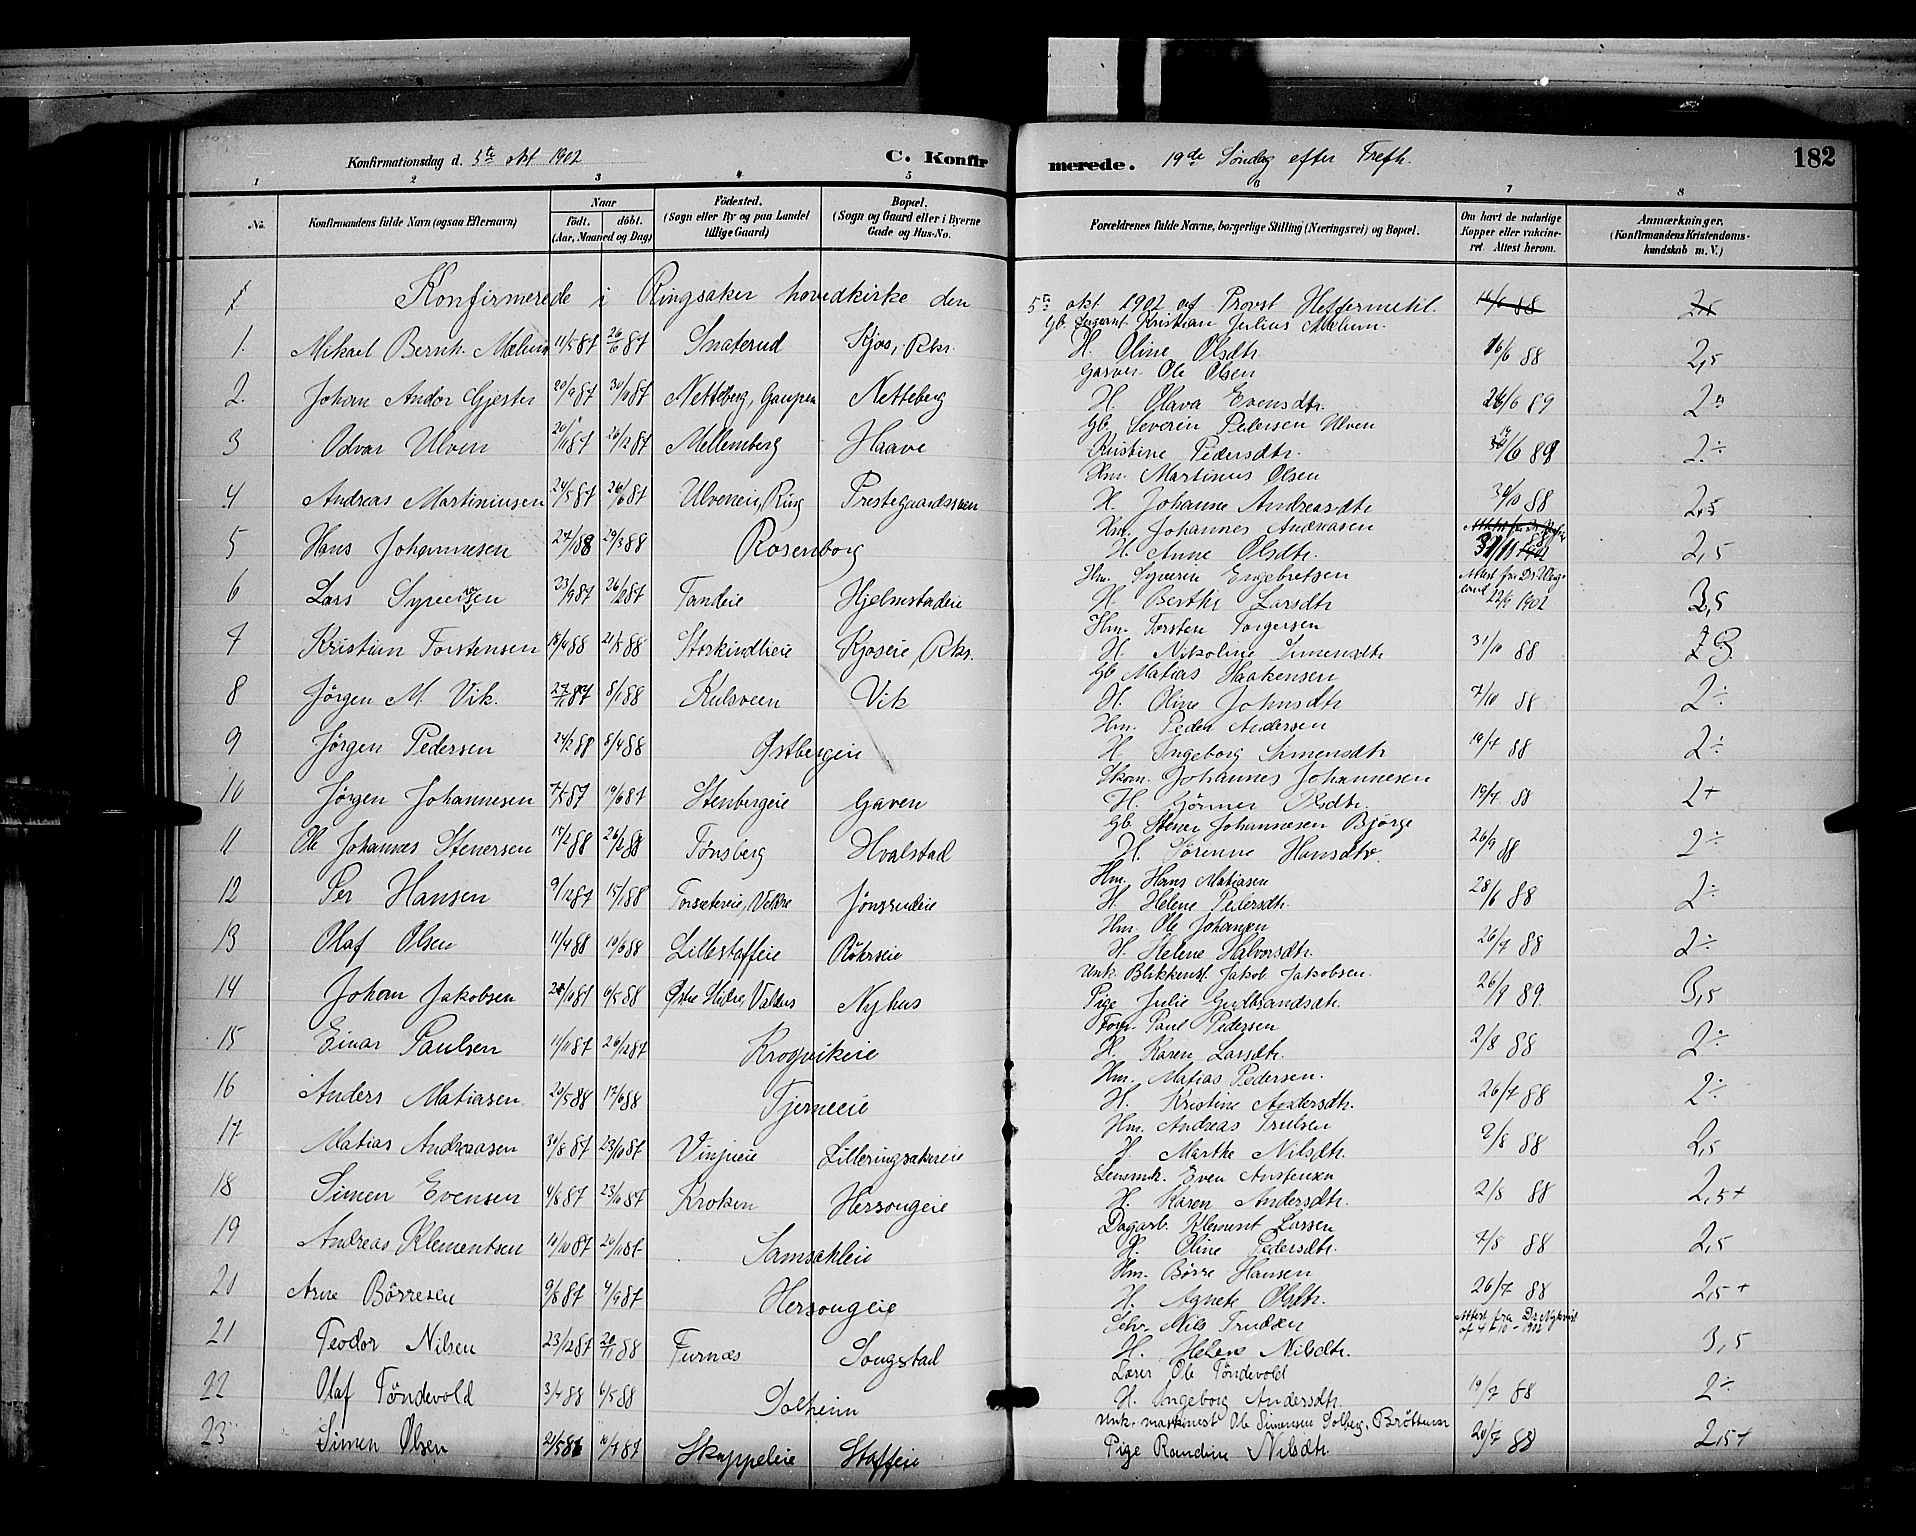 182
Konfirmationsdag d. 5te okt 1902 C. Konfirmerede. 19de Søndag efter Trefh.
1 2 3 4 5 6 7 8
No. Konfirmandens fulde Navn (ogsaa Efternavn) Naar født. døbt. (Aar, Maaned og Dag) Fødested. (Sogn eller By og paa Landet tillige Gaard) Bopæl. (Sogn og Gaard eller i Byerne Gade og Hus-No. Forældrenes fulde Navne, borgerlige Stilling (Næringsvei) og Bopæl. Om havt de naturlige Kopper eller vakcineret Attest herom. Anmærkninger. (Konfirmandens Kristendomskundskab m. V.)
Konfirmerede i Ringsaker hovedkirke den 5te okt 1902 af Provst
Gb. Sergeant Kristian Julius Mælum.
1. Mikael Bernh. Mælum 11/5 87 26/6 87 Snaterud Kjos, Rkr. H. Oline Olsdtr. 16/6 88 2,5
Gaarv. Ole Olsen
2. Johan Andor Gjester 20/9 87 30/10 87 Netteberg, Gaupen Netteberg H. Olava Evensdtr. 26/6 89
Gb. Severin Pedersen Ulven
3 Odvar Ulven 20/11 87 26/12 87 Mellemberg Haave Kristine Pedersdtr. 2÷
Hm. Martinus Olsen
4 Andreas Martiniusen 24/5 87 26/6 87 Ulveneie, Ring Prestegaardssveen H. Johanne Andreasdtr 30/10 88 2,5
Hm. Johannes Andreasen
5 Hans Johannesen 29/3 88 Rosenborg H. Anne Olsdtr. 2,5
Hm. Syveren Engebretsen Attest fra Dr.
6 Lars Syversen 23/9 87 Tandeie Hjelmstadeie H. Berthe Larsdtr 22/9 1902 3,5
Hm. Torsten Torgersen
7 Kristian Torstensen 21/5 88 Storkindlieie Kjoseie, Rkr. H. Nikoline Simensdtr 31/10 88 3
Gb Matias Haakensen
8 Jørgen M. Vik. 27/11 87 8/1 88 Kulsveen Vik H. Oline Johnsdtr 7/10 88 2÷
Hm. Peder Andersen
9 Jørgen Pedersen 24/2 88 8/4 88 Østbergeie H. Ingeborg Simensdtr 19/7 88 2÷
Skom. Johannes Johannesen
10 Jørgen Johannesen 7/5 87 19/6 87 Stenbergeie Gaven H. Gørmer Olsdtr. 19/7 88 2+
Gb. Stener Johannesen Bjørge
11 Ole Johannes Stenersen 15/2 88 Tønsberg Hvalstad H. Sørenne Hansdtr. 26/9 88 2÷
Hm. Hans Matiasen
12 Per Hansen 9/12 87 15/1 88 Torsætereie, Veldre Jønsrudeie H. Helene Pedersdtr. 28/6 88 2÷
Hm. Ole Johansen
13 Olaf Olsen 11/4 88 10/6 88 Lillestaffeie Røhrseie H. Helene Halvorsdtr. 26/7 88 2÷
Unk. Blikkensl. Jakob Jakobsen.
14 Johan Jakobsen 6/5 88 Nyhus Pige Julie Gudbrandsdtr. 26/9 89. 3,5
Form. Paul Pedersen
15 Einar Paulsen 11/11 87 26/12 87 Krogvikeie H. Karen Larsdtr. 2/8 88 2÷
Hm. Matias Pedersen.
16 Anders Matiasen 20/5 88 17/6 88 Tjerneeie H. Kristine Andersdtr. 26/7 88 2÷
Hm. Andreas Trulsen
17 Matias Andreasen 30/8 87 23/10 87 Vinjueie Lilleringsakereie H Marthe Nilsdtr. 2/8 88 2,5
Even Austensen
18 Simen Evensen 4/8 87 23/10 87 Kroken Hersougeie H. Karen Andersdtr. 2/8 88 2,5+
Dagarb. Klement Larsen
19 Andreas Klementsen 14/10 87 20/11 87 Samsakleie H. Oline Pedersdtr. 7/8 88 2,5
Hm. Børre Hansen
20 Arne Børresen 9/8 87 4/9 87 Hersougeie H. Agnete Olsdtr. 26/7 88 2,5+
Selv. Nils Trulsen Attest fra Dr. Nykvist
21 Teodor Nilsen 23/12 87 20/11 88 Furnæs Sougstad H. Helene Nilsdtr. af 4-10-1902 3,5
Lærer Ole Tøndevold
22 Olaf Tøndevold 3/4 88 6/5 88 Solheim H. Ingeborg Andersdtr. 19/7 88 2÷
Unk. maskinist Ole Simensen Solberg, Brøttum
23 Simen Olsen 10/7 87 Skappeleie Staffeie Pige Randine Nilsdtr. 20/7 88 2,5+